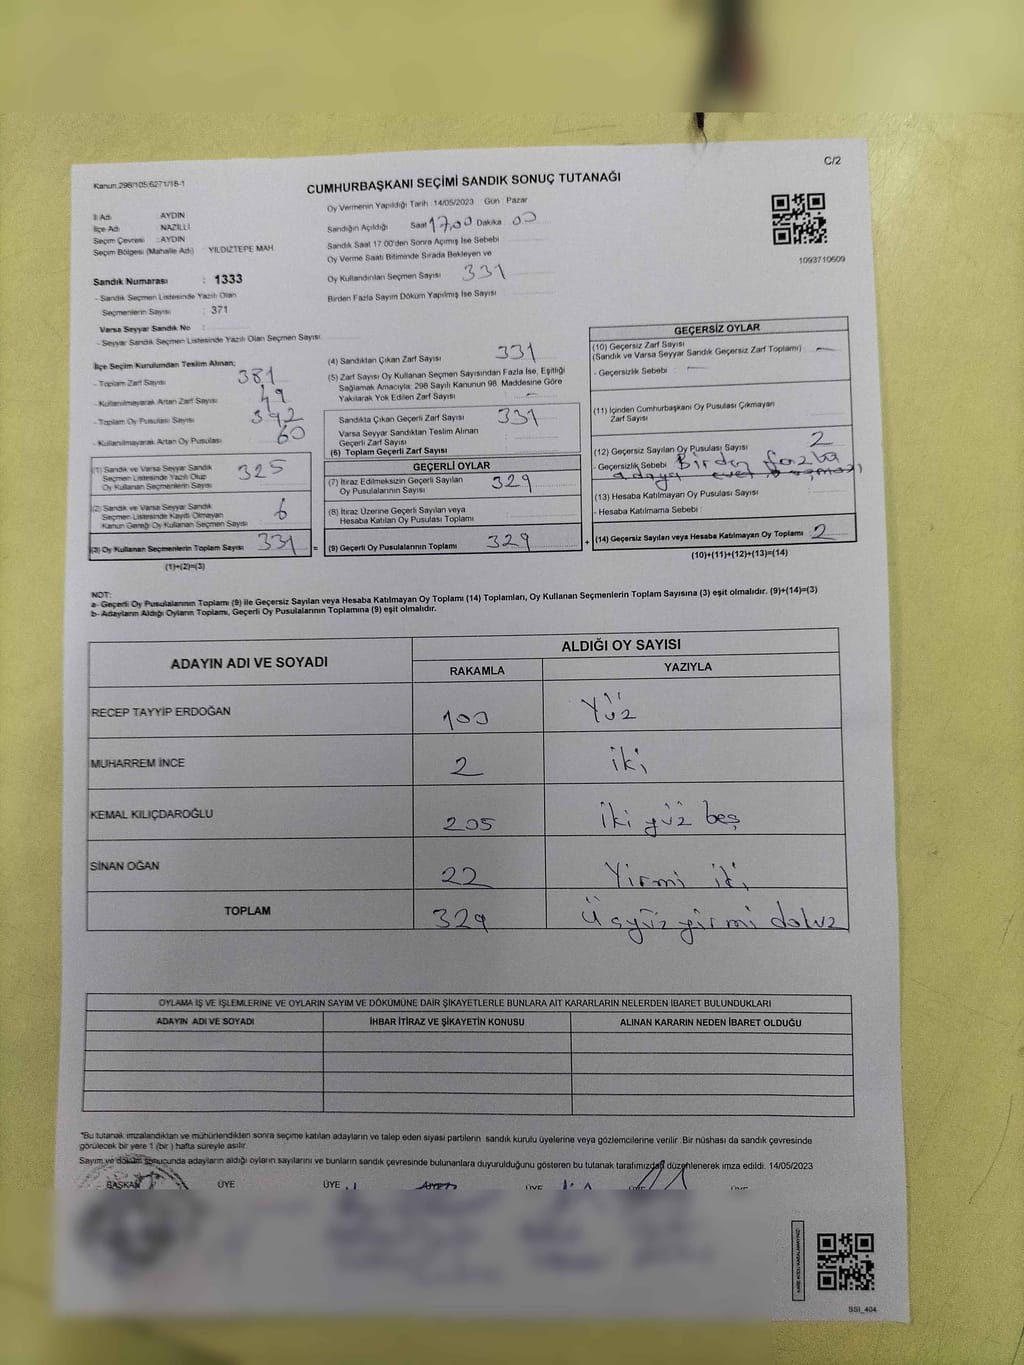 C/2
Kanun:298/105;6271/18-1
CUMHURBAŞKANI SEÇİMİ SANDIK SONUÇ TUTANAĞI
İl Adı : AYDIN
İlçe Adı : NAZİLLİ
Seçim Çevresi : AYDIN
Seçim Bölgesi (Mahalle Adı) : YILDIZTEPE MAH.
Sandık Numarası : 1333
- Sandık Seçmen Listesinde Yazılı Olan
Seçmenlerin Sayısı : 371
Varsa Seyyar Sandık No :
- Seyyar Sandık Seçmen Listesinde Yazılı Olan Seçmen Sayısı :
Oy Vermenin Yapıldığı Tarih : 14/05/2023 Gün : Pazar
Sandığın Açıldığı Saat 17,00 Dakika 00
Sandık Saat 17.00'den Sonra Açımış İse Sebebi :
Oy Verme Saati Bitiminde Sırada Bekleyen ve
Oy Kullandırılan Seçmen Sayısı : 331
Birden Fazla Sayım Döküm Yapılmış İse Sayısı :
1093710609
İlçe Seçim Kurulundan Teslim Alınan;
- Toplam Zarf Sayısı : 381
- Kullanılmayarak Artan Zarf Sayısı : 49
- Toplam Oy Pusulası Sayısı : 392
- Kullanılmayarak Artan Oy Pusulası : 60
(1) Sandık ve Varsa Seyyar Sandık
Seçmen Listesinde Yazılı Olup
Oy Kullanan Seçmenlerin Sayısı : 325
(2) Sandık ve Varsa Seyyar Sandık
Seçmen Listesinde Kayıtlı Olmayan
Kanun Gereği Oy Kullanan Seçmen Sayısı : 6
(3) Oy Kullanan Seçmenlerin Toplam Sayısı : 331
(1)+(2)=(3)
(4) Sandıktan Çıkan Zarf Sayısı : 331
(5) Zarf Sayısı Oy Kullanan Seçmen Sayısından Fazla İse, Eşitliği
Sağlamak Amacıyla; 298 Sayılı Kanunun 98. Maddesine Göre
Yakılarak Yok Edilen Zarf Sayısı : -
Sandıkta Çıkan Geçerli Zarf Sayısı : 331
Varsa Seyyar Sandıktan Teslim Alınan
Geçerli Zarf Sayısı :
(6) Toplam Geçerli Zarf Sayısı :
GEÇERLİ OYLAR
(7) İtiraz Edilmeksizin Geçerli Sayılan
Oy Pusulalarının Sayısı : 329
(8) İtiraz Üzerine Geçerli Sayılan veya
Hesaba Katılan Oy Pusulası Toplamı :
= (9) Geçerli Oy Pusulalarının Toplamı : 329
GEÇERSİZ OYLAR
(10) Geçersiz Zarf Sayısı
(Sandık ve Varsa Seyyar Sandık Geçersiz Zarf Toplamı) : -
- Geçersizlik Sebebi : -
(11) İçinden Cumhurbaşkanı Oy Pusulası Çıkmayan
Zarf Sayısı :
(12) Geçersiz Sayılan Oy Pusulası Sayısı : 2
- Geçersizlik Sebebi : Birden fazla
adaya evet
(13) Hesaba Katılmayan Oy Pusulası Sayısı :
- Hesaba Katılmama Sebebi :
+ (14) Geçersiz Sayılan veya Hesaba Katılmayan Oy Toplamı : 2
(10)+(11)+(12)+(13)=(14)
NOT:
a- Geçerli Oy Pusulalarının Toplamı (9) ile Geçersiz Sayılan veya Hesaba Katılmayan Oy Toplamı (14) Toplamları, Oy Kullanan Seçmenlerin Toplam Sayısına (3) eşit olmalıdır. (9)+(14)=(3)
b- Adayların Aldığı Oyların Toplamı, Geçerli Oy Pusulalarının Toplamına (9) eşit olmalıdır.
ADAYIN ADI VE SOYADI ALDIĞI OY SAYISI
RAKAMLA YAZIYLA
RECEP TAYYİP ERDOĞAN 100 Yüz
MUHARREM İNCE 2 iki
KEMAL KILIÇDAROĞLU 205 İki yüz beş
SİNAN OĞAN 22 Yirmi iki
TOPLAM 329 Üçyüz yirmi dokuz
OYLAMA İŞ VE İŞLEMLERİNE VE OYLARIN SAYIM VE DÖKÜMÜNE DAİR ŞİKAYETLERLE BUNLARA AİT KARARLARIN NELERDEN İBARET BULUNDUKLARI
ADAYIN ADI VE SOYADI İHBAR İTİRAZ VE ŞİKAYETİN KONUSU ALINAN KARARIN NEDEN İBARET OLDUĞU
*Bu tutanak imzalandıktan ve mühürlendikten sonra seçime katılan adayların ve talep eden siyasi partilerin sandık kurulu üyelerine veya gözlemcilerine verilir. Bir nüshası da sandık çevresinde
görülecek bir yere 1 (bir ) hafta süreyle asılır.
Sayım ve döküm sonucunda adayların aldığı oyların sayılarını ve bunların sandık çevresinde bulunanlara duyurulduğunu gösteren bu tutanak tarafımızdan düzenlenerek imza edildi. 14/05/2023
BAŞKAN ÜYE ÜYE ÜYE ÜYE
SSI_404